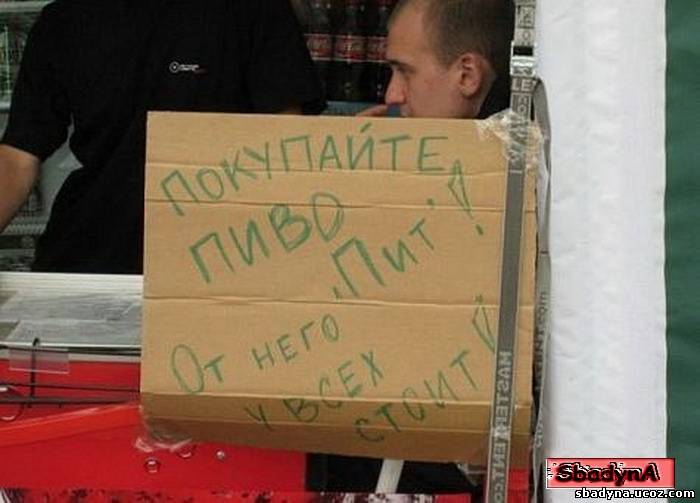 ПОКУПАЙТЕ
ПИВО
„Пит"!
От НЕГО
У ВСЕХ
СТОИТ!
MASTERTENT.COM
SbadynA
sbadyna.ucoz.com